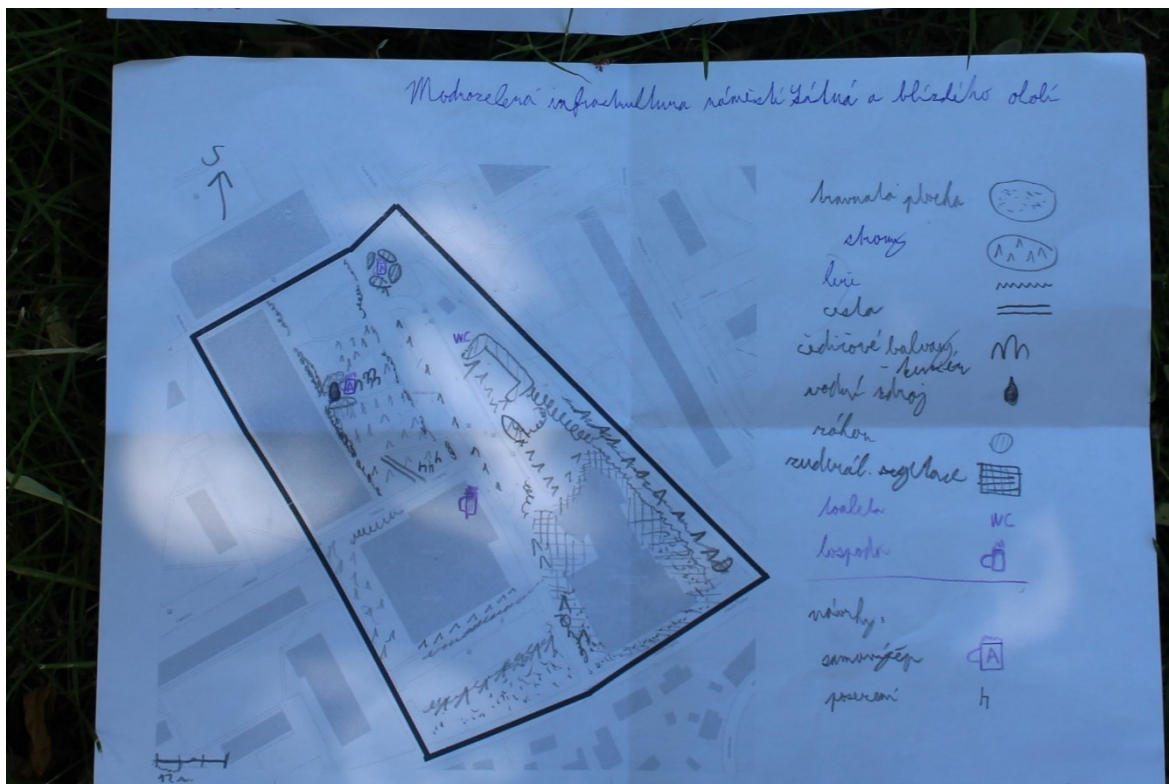 Modrozelená infrastruktura náměstí Játná a blízkého okolí
S
travnatá plocha
stromy
keře
cesta
čedičové balvany
vodní zdroj
záhon
ruderál. vegetace
toaleta WC
hospoda
návrhy:
samovýčep A
posezení
WC
A
A
12 m